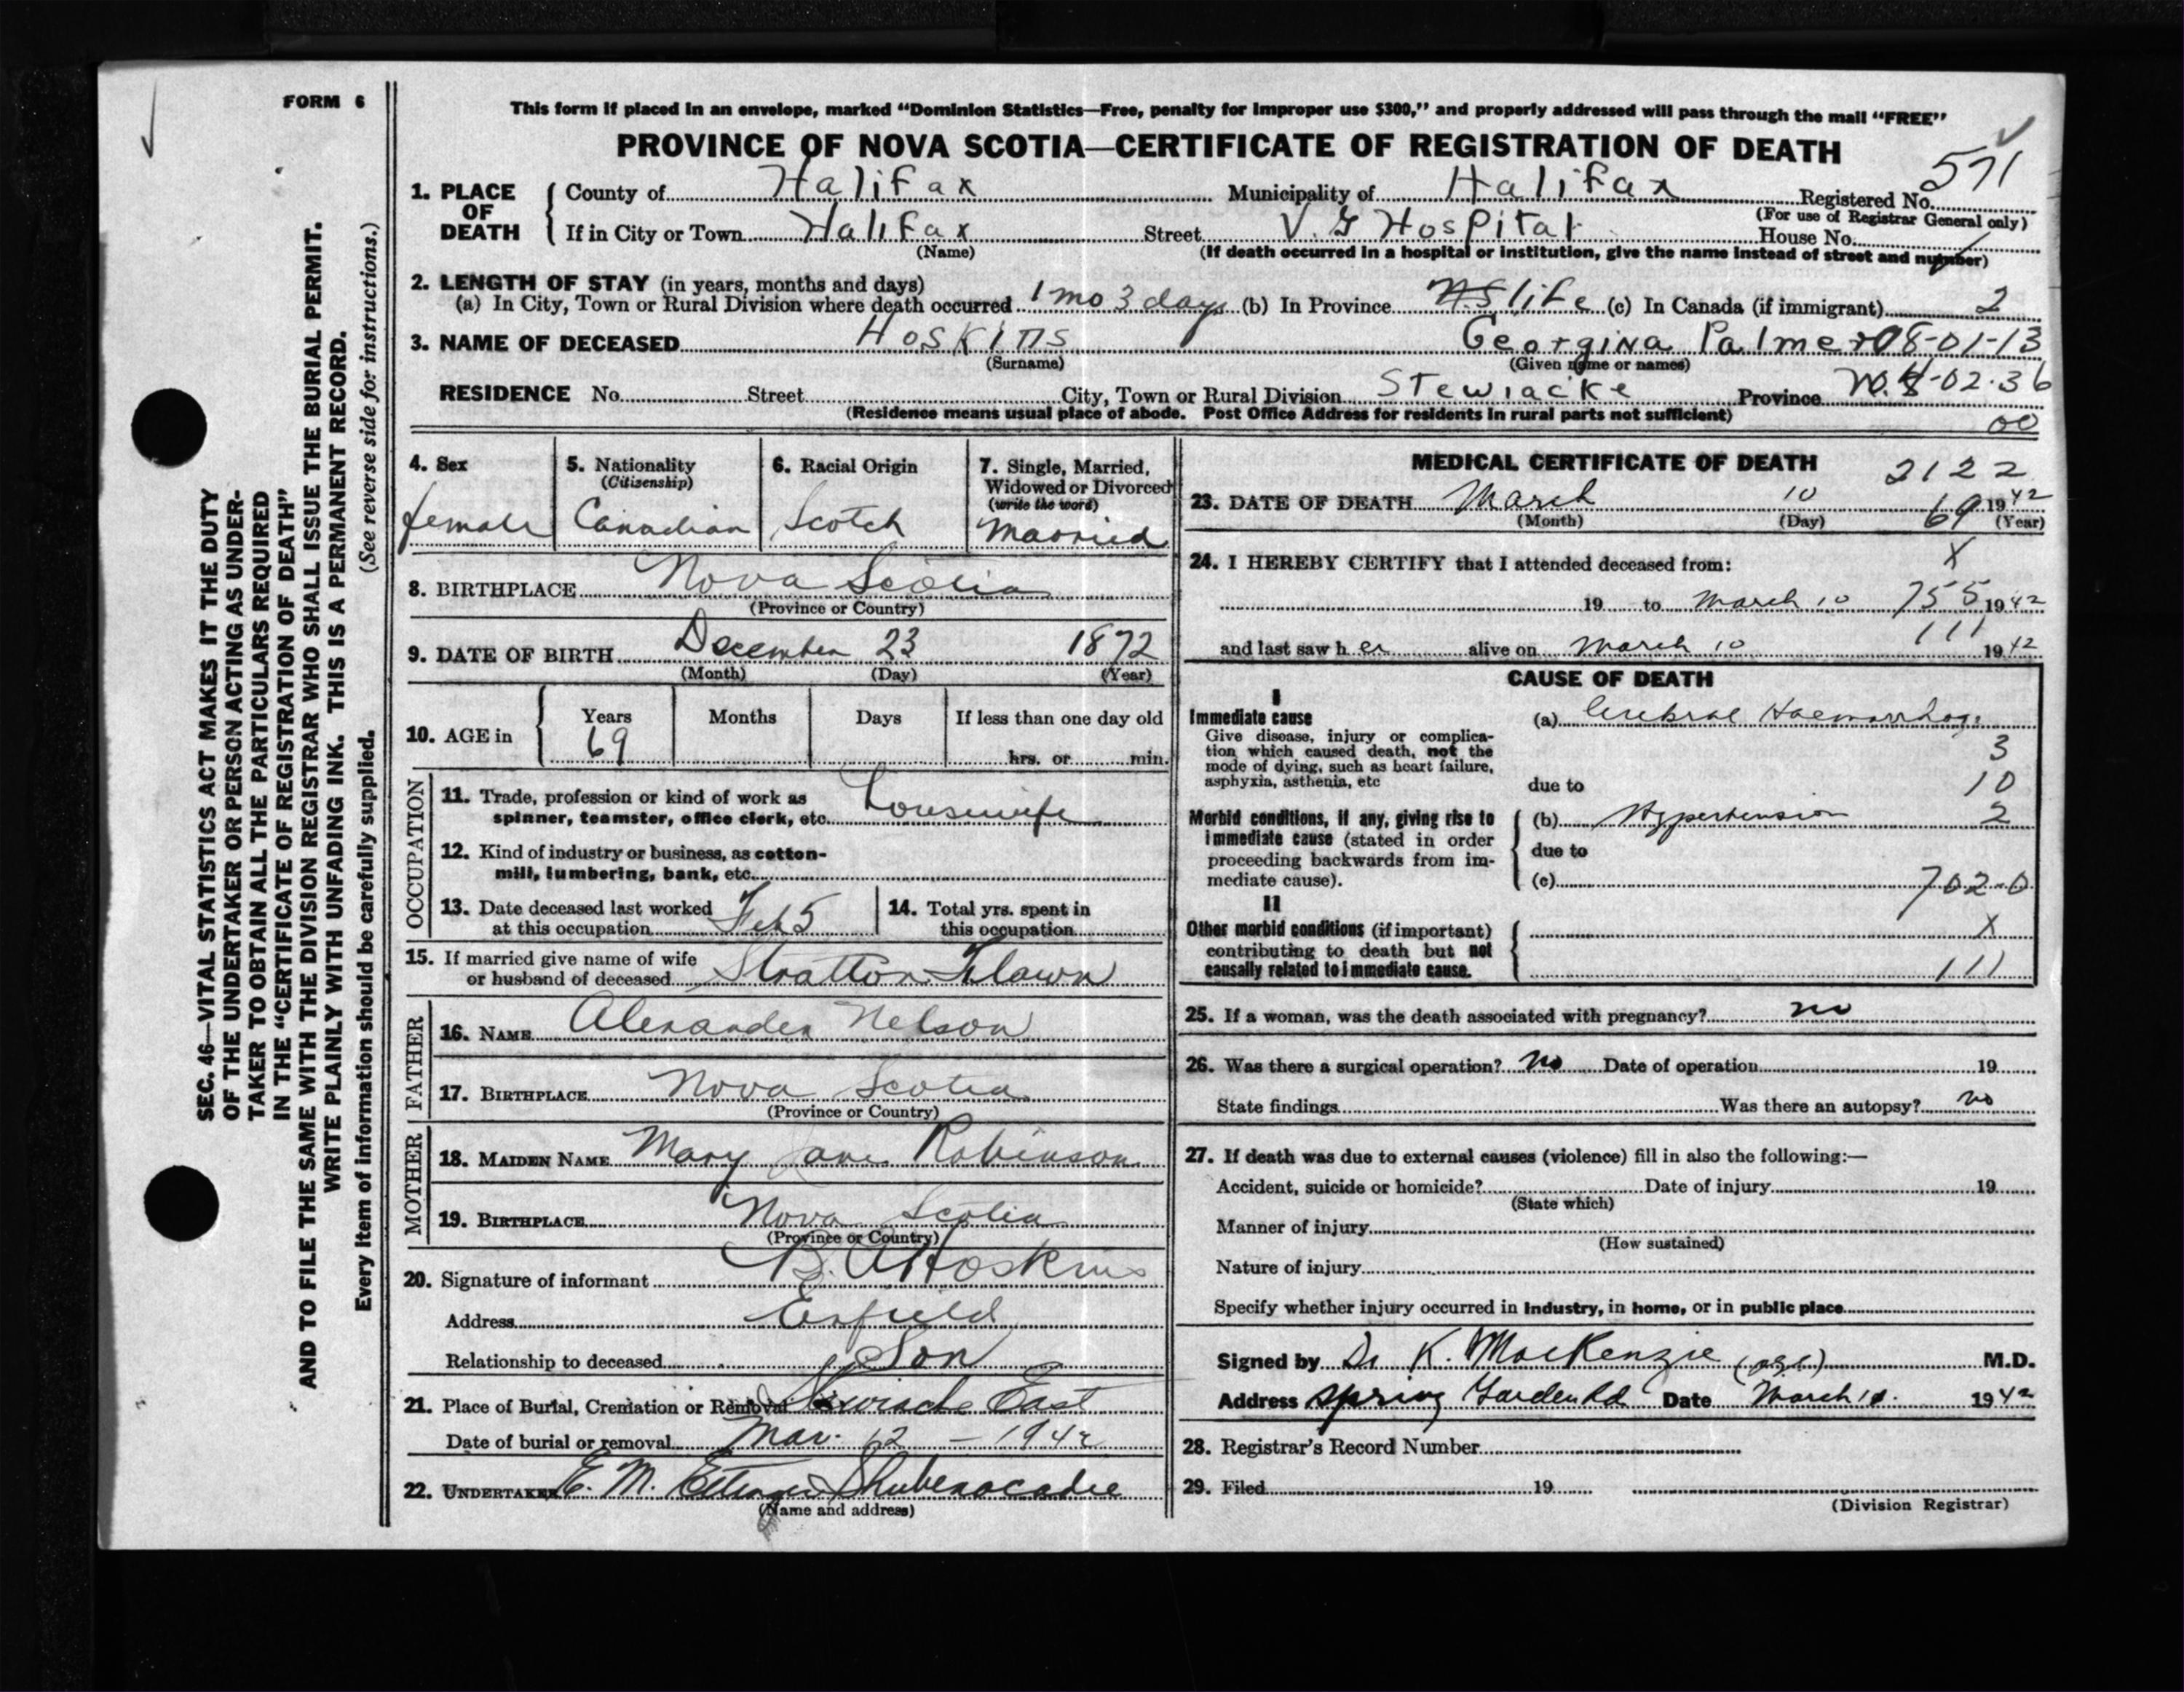 FORM 6
This form if placed in an envelope, marked “Dominion Statistics—Free, penalty for improper use $300,” and properly addressed will pass through the mail “FREE”
PROVINCE OF NOVA SCOTIA—CERTIFICATE OF REGISTRATION OF DEATH
571
1. PLACE OF DEATH
County of Halifax Municipality of Halifax Registered No.
(For use of Registrar General only)
If in City or Town Halifax Street V. G Hospital House No.
(Name) (If death occurred in a hospital or institution, give the name instead of street and number)
2. LENGTH OF STAY (in years, months and days)
(a) In City, Town or Rural Division where death occurred 1 mo 3 days (b) In Province N.S life (c) In Canada (if immigrant) 2
3. NAME OF DECEASED Hoskins Georgina Palmer 08-01-13
(Surname) (Given name or names)
RESIDENCE No. Street City, Town or Rural Division Stewiacke Province N.S -02-36
(Residence means usual place of abode. Post Office Address for residents in rural parts not sufficient)
00
4. Sex
female
5. Nationality
(Citizenship)
Canadian
6. Racial Origin
Scotch
7. Single, Married,
Widowed or Divorced
(write the word)
Married
8. BIRTHPLACE Nova Scotia
(Province or Country)
9. DATE OF BIRTH December 23 1872
(Month) (Day) (Year)
10. AGE in
Years Months Days If less than one day old
69 hrs. or min.
OCCUPATION
11. Trade, profession or kind of work as
spinner, teamster, office clerk, etc. housewife
12. Kind of industry or business, as cotton-
mill, lumbering, bank, etc.
13. Date deceased last worked
at this occupation Feb 5
14. Total yrs. spent in
this occupation
15. If married give name of wife
or husband of deceased Stratton
FATHER
16. NAME Alexander Nelson
17. BIRTHPLACE Nova Scotia
(Province or Country)
MOTHER
18. MAIDEN NAME Mary Jane Robinson
19. BIRTHPLACE Nova Scotia
(Province or Country)
20. Signature of informant B. A Hoskins
Address Enfield
Relationship to deceased Son
21. Place of Burial, Cremation or Removal Stewiacke East
Date of burial or removal Mar. 12 – 1942
22. UNDERTAKER E. M. Ettinger Shubenacadie
(Name and address)
MEDICAL CERTIFICATE OF DEATH
2122
23. DATE OF DEATH March 10 69 1942
(Month) (Day) (Year)
24. I HEREBY CERTIFY that I attended deceased from:
X
19 to March 10 755 1942
111
and last saw h er alive on March 10 1942
CAUSE OF DEATH
I
Immediate cause
Give disease, injury or complica-
tion which caused death, not the
mode of dying, such as heart failure,
asphyxia, asthenia, etc
(a) Cerebral Haemorrhage
3
due to 10
Morbid conditions, if any, giving rise to
immediate cause (stated in order
proceeding backwards from im-
mediate cause).
(b) Hypertension 2
due to
(c) 702-0
II
Other morbid conditions (if important)
contributing to death but not
causally related to immediate cause.
X
111
25. If a woman, was the death associated with pregnancy? no
26. Was there a surgical operation? No Date of operation 19
State findings Was there an autopsy? no
27. If death was due to external causes (violence) fill in also the following:—
Accident, suicide or homicide? Date of injury 19
(State which)
Manner of injury
(How sustained)
Nature of injury
Specify whether injury occurred in industry, in home, or in public place
Signed by Dr K. MacKenzie M.D.
Address Spring Garden Rd Date March 10. 1942
28. Registrar's Record Number
29. Filed 19
(Division Registrar)
SEC. 46—VITAL STATISTICS ACT MAKES IT THE DUTY
OF THE UNDERTAKER OR PERSON ACTING AS UNDER-
TAKER TO OBTAIN ALL THE PARTICULARS REQUIRED
IN THE “CERTIFICATE OF REGISTRATION OF DEATH”
AND TO FILE THE SAME WITH THE DIVISION REGISTRAR WHO SHALL ISSUE THE BURIAL PERMIT.
WRITE PLAINLY WITH UNFADING INK. THIS IS A PERMANENT RECORD.
Every item of information should be carefully supplied. (See reverse side for instructions.)